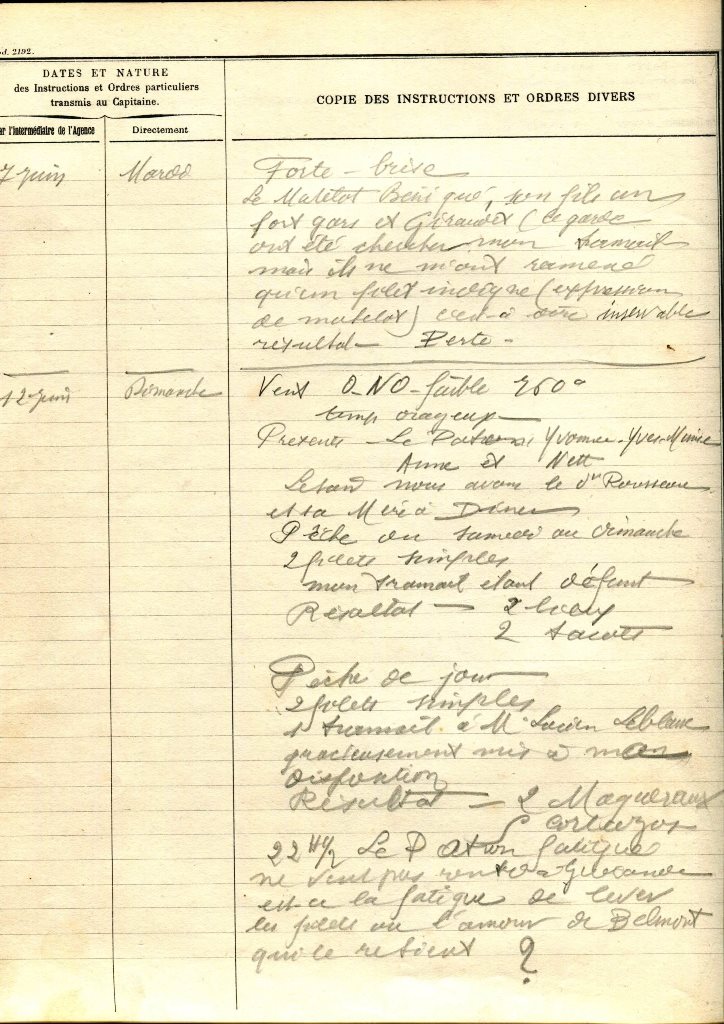 od. 2192.
DATES ET NATURE
des Instructions et Ordres particuliers
transmis au Capitaine.
ar l'intermédiaire de l'Agence
Directement
COPIE DES INSTRUCTIONS ET ORDRES DIVERS
7 juin
Mardi
Forte - brise
Le Matelot Béniqué, son fils un
fort gars et Giraudet (Le garde
ont été chercher mon tramail
mais ils ne m'ont ramené
qu'un filet indigne (expression
de matelot) c'est-à dire inservable
résultat - Perte -
12 juin
Dimanche
Vent O-NO- faible 760°
temps orageux
Présents - Le Patron Yvonne - Yves - Minie
Anne et Nett
Le soir nous avons le Dr Rousseau
et sa Mère à Diner
Pêche du samedi au dimanche
2 filets simples
mon tramail étant défunt
Résultat - 2
2 tacots
Pêche de jour
2 filets simples
1 tramail à Mr Lucien Leblanc
gracieusement mis à mon
disposition
Résultat - 2 Maquereaux
22 H 1/2 Le Patron fatigué
ne veut pas rentrer à
est-ce la fatigue de lever
les filets ou l'amour de Belmont
qui le retient ?